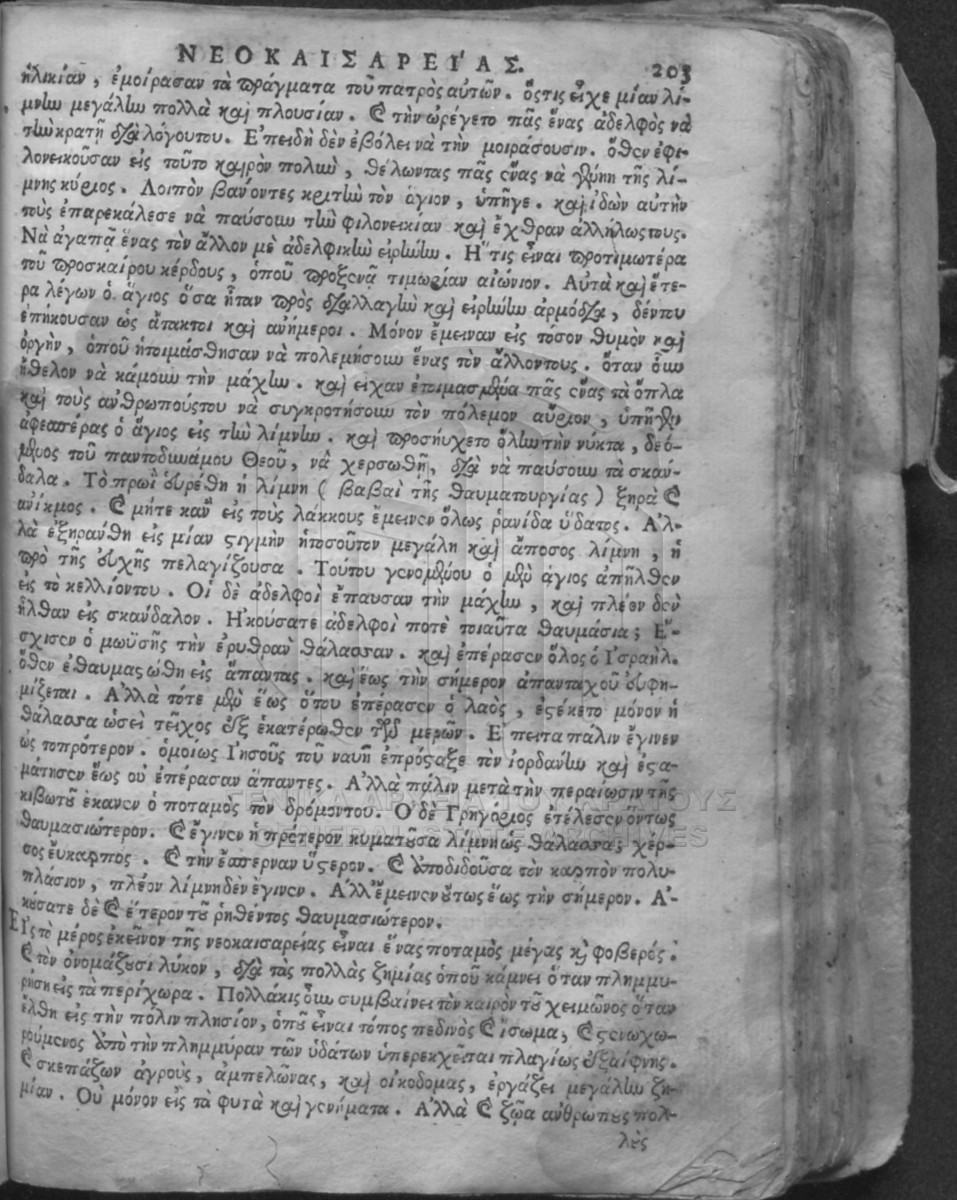 ΝΕΟΚΑΙΣΑΡΕΊΑΣ. 203
ἡλικίαν, ἐμοίρασαν τὰ πράγματα τοῦ πατρὸς αὐτῶν. ὅστις εἶχε μίαν λί-
μνην μεγάλην πολλὰ καὶ πλουσίαν. καὶ τὴν ὠρέγετο πᾶς ἕνας ἀδελφὸς νὰ
τὴν κρατῇ διὰ λόγουτου. Ἐπειδὴ δὲν ἐβόλει νὰ τὴν μοιράσουσιν. ὅθεν ἐφι-
λονεικοῦσαν εἰς τοῦτο καιρὸν πολὺν, θέλωντας πᾶς ἕνας νὰ γένῃ τῆς λί-
μνης κύριος. Λοιπὸν βανοντες κριτὴν τὸν ἅγιον, ὑπῆγε. καὶ ἰδὼν αὐτὴν
τοὺς ἐπαρεκάλεσε νὰ παύσουν τὴν φιλονεικίαν καὶ ἔχθραν ἀλλήλωςτους.
Νὰ ἀγαπᾷ ἕνας τὸν ἄλλον μὲ ἀδελφικὴν εἰρήνην. Ἥτις εἶναι προτιμωτέρα
τοῦ προσκαίρου κέρδους, ὁποῦ προξενᾷ τιμωρίαν αἰώνιον. Αὐτὰ καὶ ἕτε-
ρα λέγων ὁ ἅγιος ὅσα ἦταν πρὸς διαλλαγὴν καὶ εἰρήνην ἁρμόδια, δέντου
ἐπήκουσαν ὡς ἄτακτοι καὶ ἀνήμεροι. Μόνον ἔμειναν εἰς τόσον θυμὸν καὶ
ὀργὴν, ὁποῦ ἡτοιμάσθησαν νὰ πολεμήσουν ἕνας τὸν ἄλλοντους. ὅταν οὖν
ἤθελον νὰ κάμουν τὴν μάχην. καὶ εἶχαν ἑτοιμασμένα πᾶς ἕνας τὰ ὅπλα
καὶ τοὺς ἀνθρωπούςτου νὰ συγκροτήσουν τὸν πόλεμον αὔριον, ὑπῆγεν
ἀφεσπέρας ὁ ἅγιος εἰς τὴν λίμνην. καὶ προσηύχετο ὅλην τὴν νύκτα, δεό-
μενος τοῦ παντοδυνάμου Θεοῦ, νὰ χερσωθῇ, διὰ νὰ παύσουν τὰ σκάν-
δαλα. Τὸ πρωῒ εὑρέθη ἡ λίμνη (βαβαὶ τῆς θαυματουργίας) ξηρὰ καὶ
ἄνικμος. καὶ μήτε κᾂν εἰς τοὺς λάκκους ἔμεινεν ὅλως ῥανίδα ὕδατος. Ἀλ-
λὰ ἐξηράνθη εἰς μίαν στιγμὴν ἡτοσοῦτον μεγάλη καὶ ἄποσος λίμνη, ἡ
πρὸ τῆς εὐχῆς πελαγίζουσα. Τούτου γενομένου ὁ μὲν ἅγιος ἀπῆλθεν
εἰς τὸ κελλίοντου. Οἱ δὲ ἀδελφοὶ ἔπαυσαν τὴν μάχην, καὶ πλέον δὲν
ἦλθαν εἰς σκάνδαλον. Ἠκούσατε ἀδελφοὶ ποτὲ τοιαῦτα θαυμάσια; Ἔ-
σχισεν ὁ μωϋσῆς τὴν ἐρυθρὰν θάλασσαν. καὶ ἐπέρασεν ὅλος ὁ Ἰσραήλ.
ὅθεν ἐθαυμαστώθη εἰς ἅπαντας. καὶ ἕως τὴν σήμερον ἁπανταχοῦ εὐφη-
μίζεται. Ἀλλὰ τότε μὲν ἕως ὅτου ἐπέρασεν ὁ λαὸς, ἐστέκετο μόνον ἡ
θάλασσα ὡσεὶ τεῖχος ἐξ ἑκατέρωθεν τῶν μερῶν. Ἔπειτα πάλιν ἔγινεν
ὡς τοπρότερον. ὁμοιως Ἰησοῦς τοῦ ναυῆ ἐπρόσταξε τὸν ἰορδάνην καὶ ἐστα-
μάτησεν ἕως οὗ ἐπέρασαν ἅπαντες. Ἀλλὰ πάλιν μετὰ τὴν περαίωσιν τῆς
κιβωτοῦ ἔκανεν ὁ ποταμὸς τὸν δρόμοντου. Ὁ δὲ Γρηγόριος ἐτέλεσεν ὄντως
θαυμασιώτερον. καὶ ἔγινεν ἡ πρότερον κυματοῦσα λίμνη ὡς θάλασσα; χέρ-
σος εὔκαρπος. καὶ τὴν ἔσπερναν ὕστερον. καὶ ἀποδιδοῦσα τὸν καρπὸν πολυ-
πλάσιον, πλέον λίμνη δὲν ἔγινεν. Ἀλλ' ἔμεινεν οὕτως ἕως τὴν σήμερον. Ἀ-
κούσατε δὲ καὶ ἕτερον τοῦ ῥηθέντος θαυμασιώτερον.
Εἰς τὸ μέρος ἐκεῖνον τῆς νεοκαισαρείας εἶναι ἕνας ποταμὸς μέγας καὶ φοβερός.
καὶ τὸν ὀνομάζουσι λύκον, διὰ τὰς πολλὰς ζημίας ὁποῦ κάμνει ὅταν πλημμυ-
ρήσῃ εἰς τὰ περίχωρα. Πολλάκις οὖν συμβαίνει τὸν καιρὸν τοῦ χειμῶνος ὅταν
ἔλθῃ εἰς τὴν πόλιν πλησίον, ὁποῦ εἶναι τόπος πεδινὸς καὶ ἴσωμα, καὶ στενωχω-
ρούμενος ἀπὸ τὴν πλημμύραν τῶν ὑδάτων ὑπερεκχεῖται πλαγίως ἐξαίφνης.
καὶ σκεπάζων ἀγροὺς, ἀμπελῶνας, καὶ οἰκοδομας, ἐργάζει μεγάλην ζη-
μίαν. Οὐ μόνον εἰς τὰ φυτὰ καὶ γεννήματα. Ἀλλὰ καὶ ζῶα ἀνθρώπους πολ-
λοὺς
ΓΕΝΙΚΑ ΑΡΧΕΙΑ ΤΟΥ ΚΡΑΤΟΥΣ
GENERAL STATE ARCHIVES